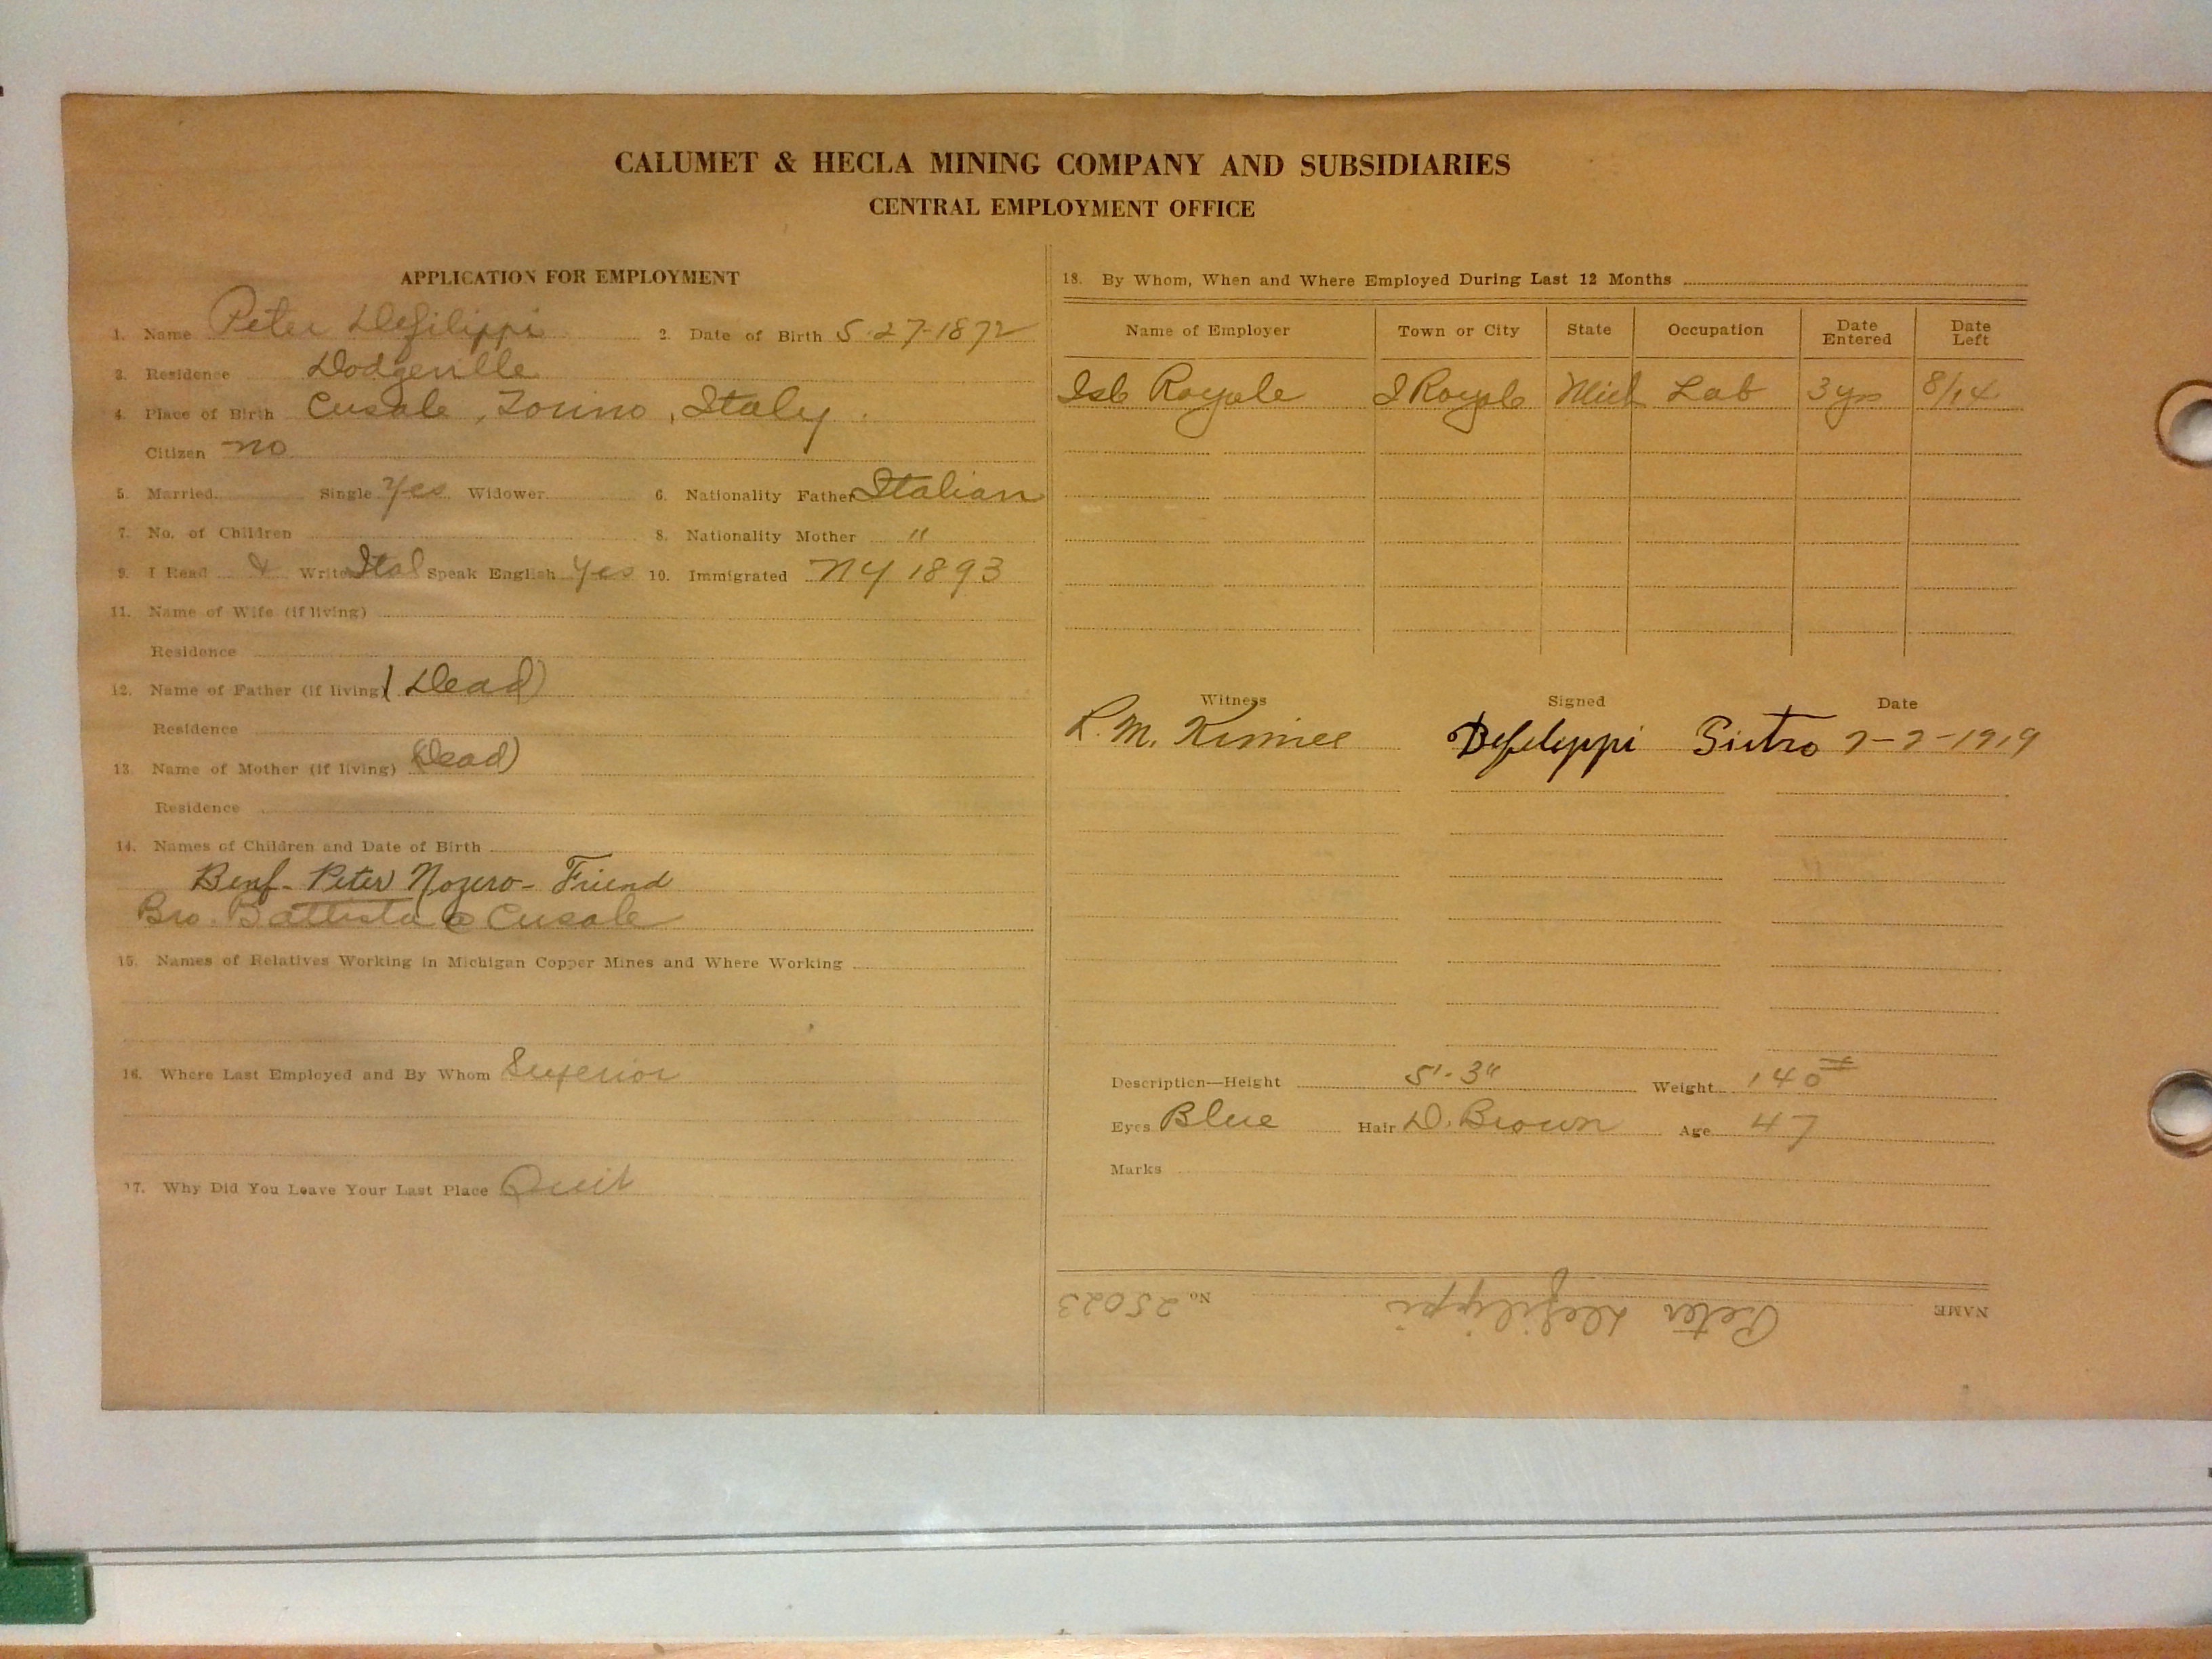 CALUMET & HECLA MINING COMPANY AND SUBSIDIARIES
CENTRAL EMPLOYMENT OFFICE
APPLICATION FOR EMPLOYMENT
1. Name Peter Defilippi 2. Date of Birth 5-27-1872
3. Residence Dodgeville
4. Place of Birth Cusale, Torino, Italy.
Citizen no
5. Married Single Yes Widower 6. Nationality Father Italian
7. No. of Children 8. Nationality Mother "
9. I Read & Write Ital Speak English Yes 10. Immigrated NY 1893
11. Name of Wife (if living)
Residence
12. Name of Father (if living) (Dead)
Residence
13. Name of Mother (if living) (Dead)
Residence
14. Names of Children and Date of Birth
Benf- Peter Nozero- Friend
Bro. Battista @ Cusale
15. Names of Relatives Working in Michigan Copper Mines and Where Working
16. Where Last Employed and By Whom Superior
17. Why Did You Leave Your Last Place Quit
18. By Whom, When and Where Employed During Last 12 Months
Name of Employer Town or City State Occupation Date Entered Date Left
Isle Royale I Royale Mich Lab 3 yrs 8/14
Witness Signed Date
R. M. Defilippi Pietro 7-7-1919
Description—Height 5'-3" Weight 140#
Eyes Blue Hair D. Brown Age 47
Marks
NAME Peter Defilippi No. 25023